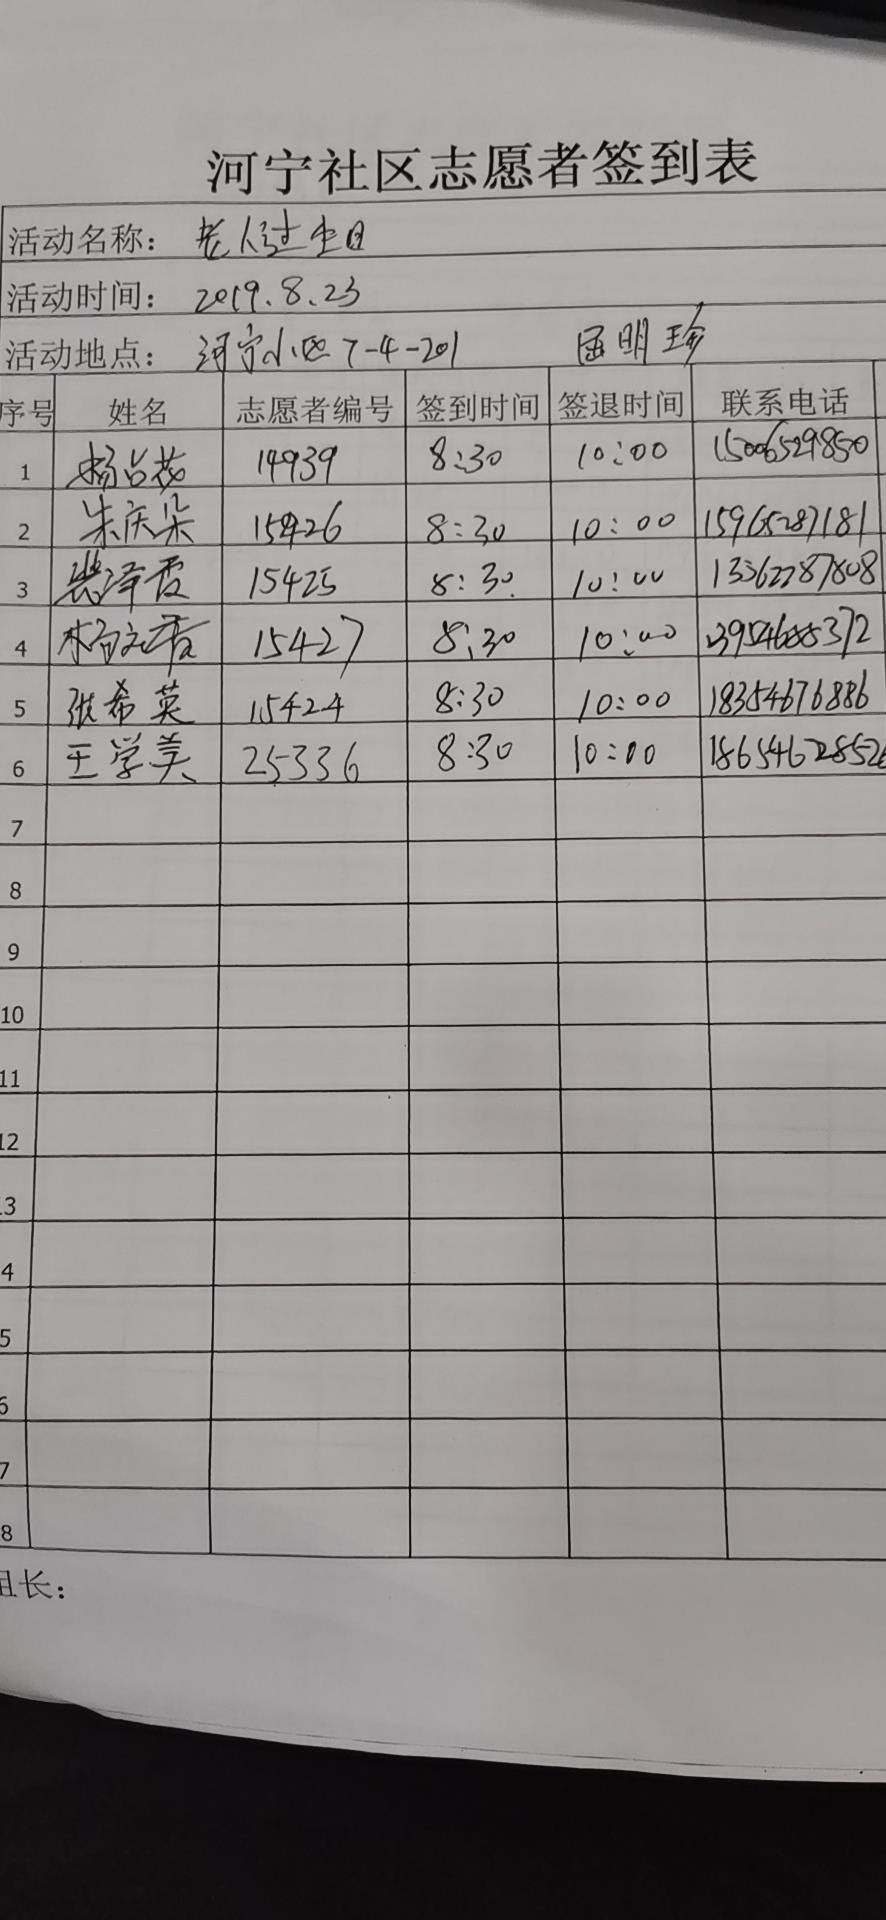 河宁社区志愿者签到表
活动名称： 老人过生日
活动时间： 2019.8.23
活动地点： 河宁小区7-4-201 屈明珍
序号 姓名 志愿者编号 签到时间 签退时间 联系电话
1 杨占茂 14939 8:30 10:00 15006529850
2 朱庆朵 15426 8:30 10:00 15965287181
3 裴泽霞 15425 8:30 10:00 13362287808
4 杨文霞 15427 8:30 10:00 3954688372
5 张希英 15424 8:30 10:00 18354676886
6 王学美 25336 8:30 10:00 18654628526
7
8
9
10
11
12
13
4
5
6
7
8
组长：